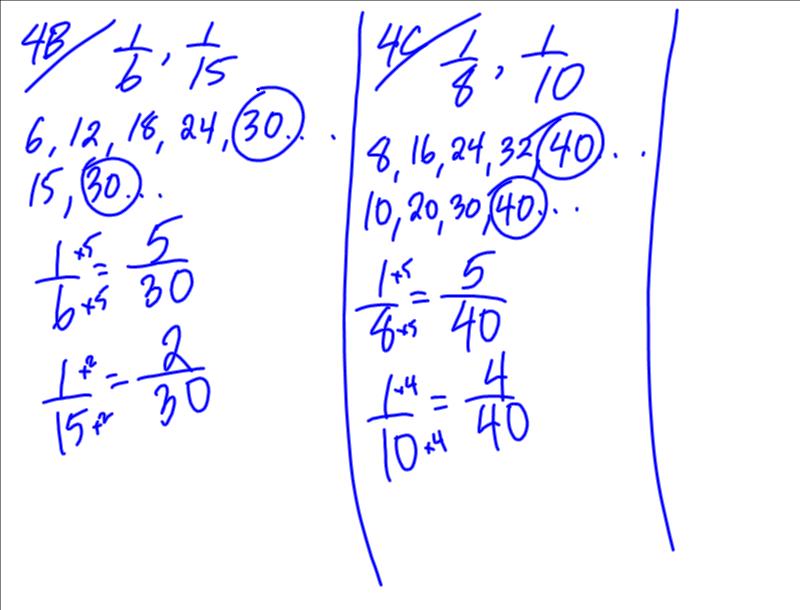 4B/ 1/6, 1/15
6, 12, 18, 24, 30...
15, 30...
1×5/6×5 = 5/30
1×2/15×2 = 2/30
4C/ 1/8, 1/10
8, 16, 24, 32, 40...
10, 20, 30, 40...
1×5/8×5 = 5/40
1×4/10×4 = 4/40